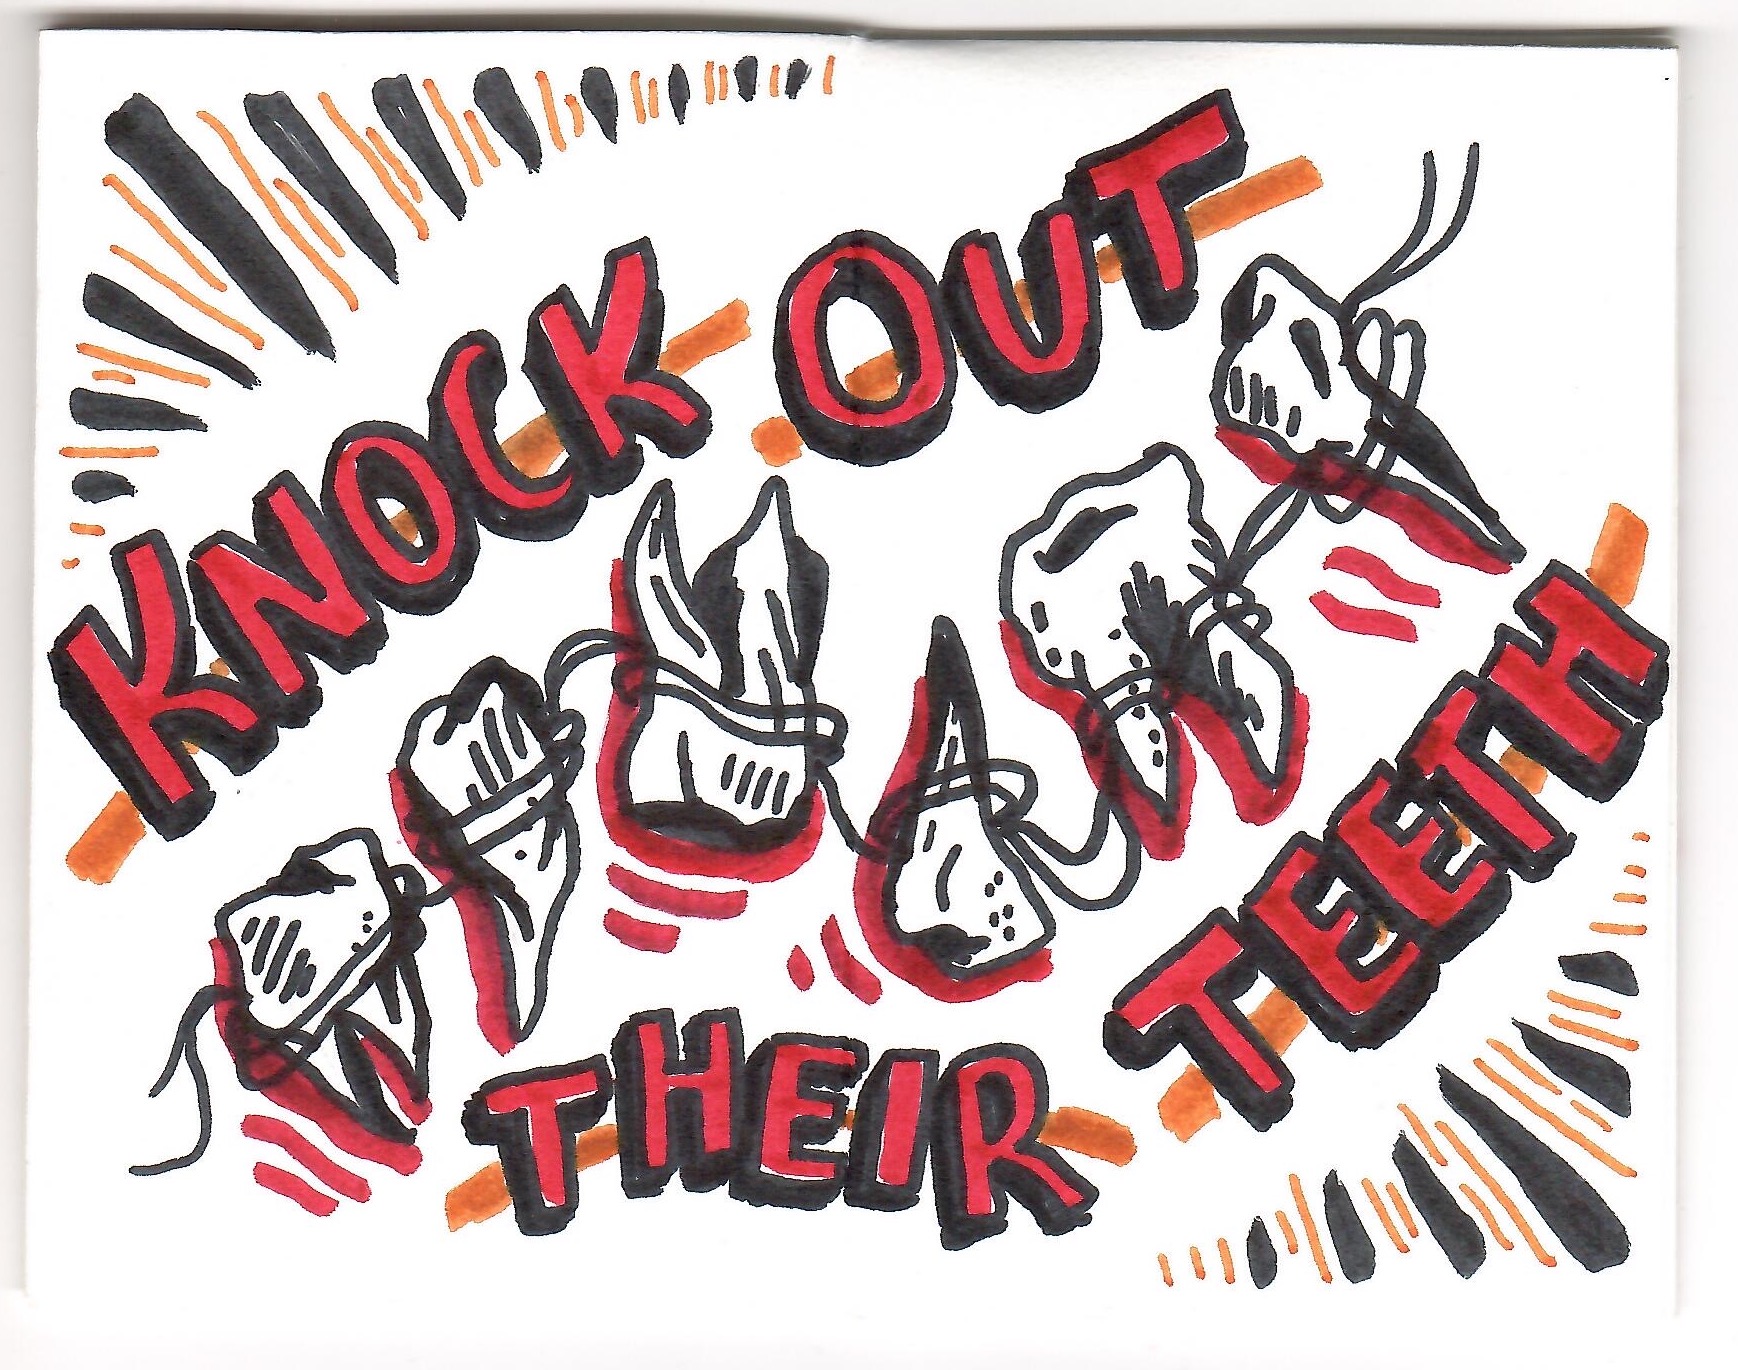 KNOCK OUT
THEIR TEETH